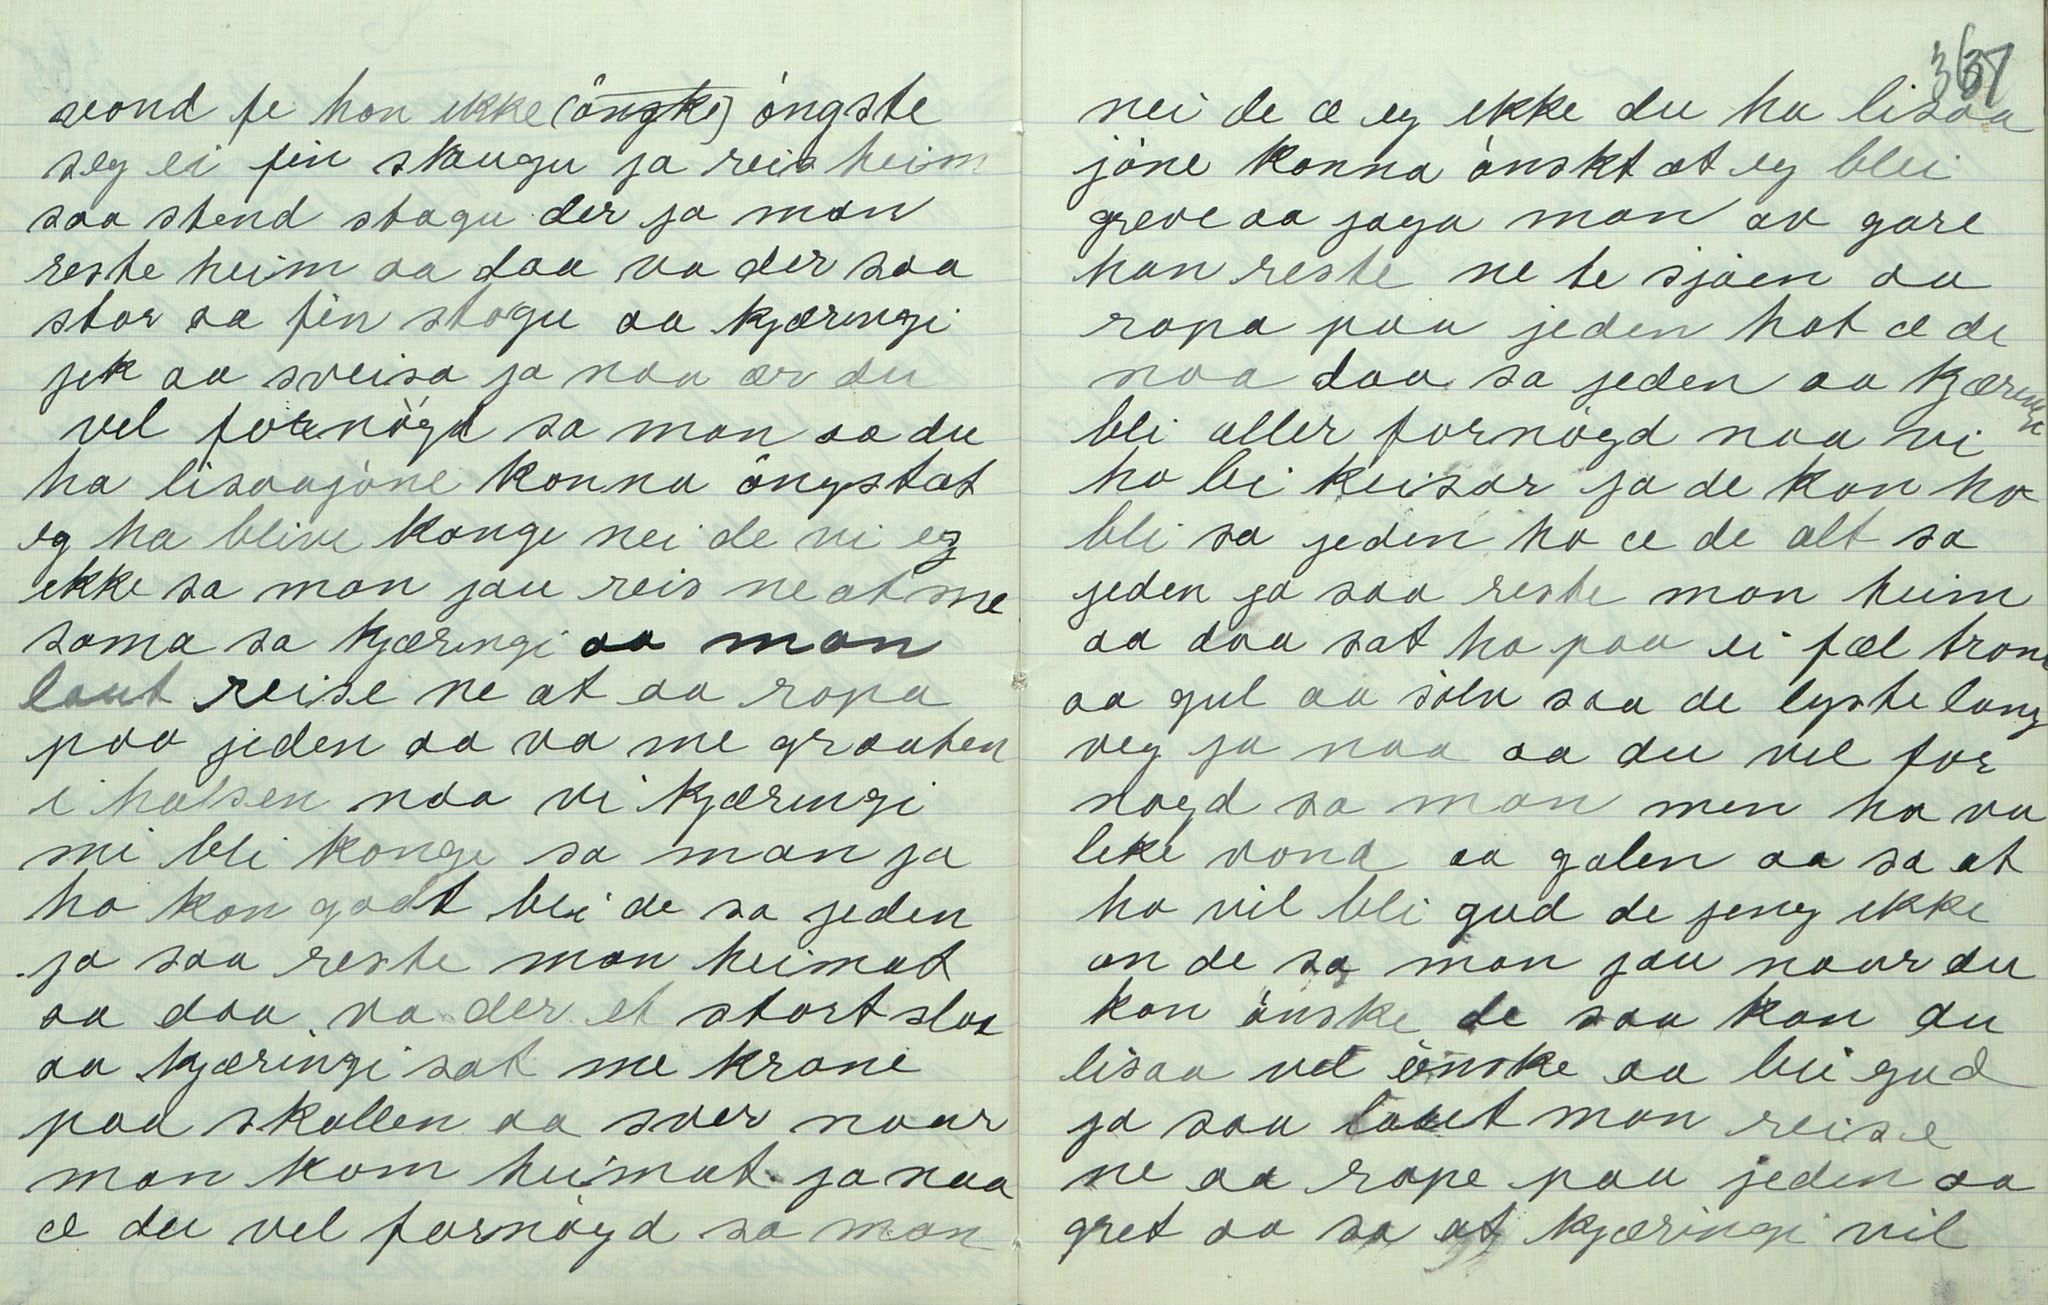 vond fe hon ikke (önske) öngste
seg ei fin staugu ja reis heim
saa stend stagu der ja man
reste heim aa daa va der saa
stor aa fin stogu aa kjæringi
jek aa sveisa ja naa ær du
vel fornögd sa man aa du
ha lisaajöne konna öngstat
eg ha blive konge nei de vi eg
ikke sa man jau reis ne at me
soma sa kjæringi aa man
laut reise ne at aa ropa
paa jeden aa va me graaten
i halsen naa vi kjæringi
mi bli konge sa man ja
ho kan godt bli de sa jeden
ja saa reste man heimat
aa daa va der et stort slot
aa kjæringi sat me krone
paa skallen aa svor naar
man kom heimat ja naa
æ du vel fornögd sa man
367
nei de æ eg ikke du ha lisaa
jöne konna önskt at eg blei
greve aa jaga man av gare
han reste ne te sjöen aa
ropa paa jeden hot æ de
naa daa sa jeden aa kjæringen
bli aller fornögd naa vi
ho bli keisar ja de kan ho
bli sa jeden ho æ de alt sa
jeden ja saa reste man heim
aa daa sat ho paa ei fæl trone
aa gul aa sölv saa de lyste lang
veg ja naa æ du vel for
nögd sa man men ho va
like vond aa galen aa sa at
ho vil bli gud de jeng ikke
an de sa man jau naar du
kan önske de saa kan du
lisaa vel önske aa bli gud
ja saa laut man reise
ne aa rope paa jeden aa
gret aa sa at kjæringi vil